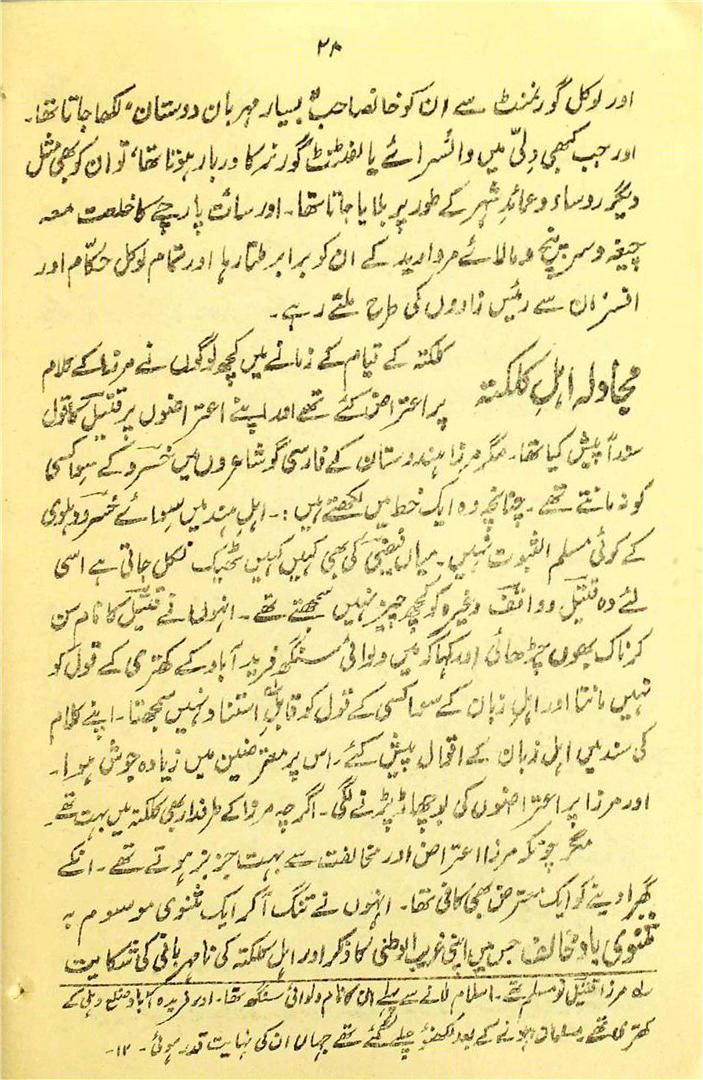 ۲۸
اور لوکل گورنمنٹ سے ان کو خانصاحب بسیار مہربان دوستان" لکھا جاتا تھا۔
اور جب کبھی دلّی میں وائسرائے یا لفٹنٹ گورنر کا دربار ہوتا تھا، تو ان کو بھی مثل
دیگر روساء و عمائد شہر کے طور پر بلایا جاتا تھا۔ اور سات پارچے کا خلعت معہ
جیغہ و سرپیچ و مالائے مروارید کے ان کو برابر ملتا رہا اور تمام لوکل حکّام اور
افسر ان سے رئیس زادوں کی طرح ملتے رہے۔
مجادلہ اہلِ کلکتہ
کلکتہ کے قیام کے زمانے میں کچھ لوگوں نے مرزا کے کلام
پر اعتراض کئے تھے اور اپنے اعتراضوں پر قتیل کا قول
سنداً پیش کیا تھا۔ مگر مرزا ہندوستان کے فارسی گو شاعروں میں خسرو کے سوا کسی
کو نہ مانتے تھے۔ چنانچہ وہ ایک خط میں لکھتے ہیں:۔ اہل ہند میں سوائے خسرو دہلوی
کے کوئی مسلم الثبوت نہیں۔ میاں فیضی کی بھی کہیں کہیں ٹھیک نکل جاتی ہے اسی
لئے وہ قتیل و واقف وغیرہ کو کچھ چیز نہیں سمجھتے تھے۔ انہوں نے قتیل کا نام سن
کر ناک بھوں چڑھائی اور کہا کہ میں دلوالی سنگھ فرید آباد کے کھتری کے قول کو
نہیں مانتا اور اہل زبان کے سوا کسی کے قول کو قابلِ استناد نہیں سمجھتا۔ اپنے کلام
کی سند میں اہل زبان کے اقوال پیش کئے۔ اس پر معترضین میں زیادہ جوش ہوا۔
اور مرزا پر اعتراضوں کی بوچھاڑ پڑنے لگی۔ اگرچہ مرزا کے طرفدار بھی کلکتہ میں بہت تھے
مگر چونکہ مرزا اعتراض اور مخالفت سے بہت جزبز ہوتے تھے۔ انکے
گھبرا دینے کو ایک معترض بھی کافی تھا۔ انہوں نے تنگ آکر ایک مثنوی موسوم بہ
مثنوی باد مخالف جس میں اپنی غریب الوطنی کا ذکر اور اہل کلکتہ کی نامہربانی کی شکایت
لہ مرزا قتیل نو مسلم تھے۔ اسلام لانے سے پہلے ان کا نام دلوالی سنگھ تھا۔ اور فرید آباد ضلع دہلی کے
کھتری تھے۔ مسلمان ہونے کے بعد لکھنؤ چلے گئے تھے جہاں ان کی نہایت قدر ہوئی۔ ۱۲۔